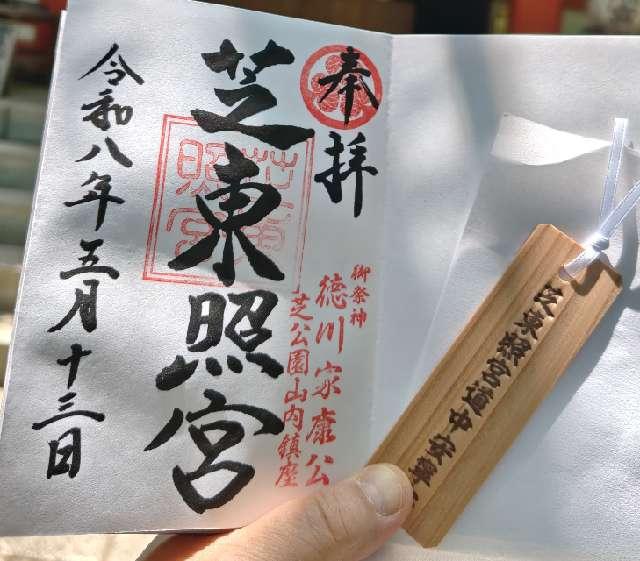 奉拝
御祭神
徳川家康公
芝公園山内鎮座
芝東照宮
令和八年五月十三日
芝東照宮道中安寧